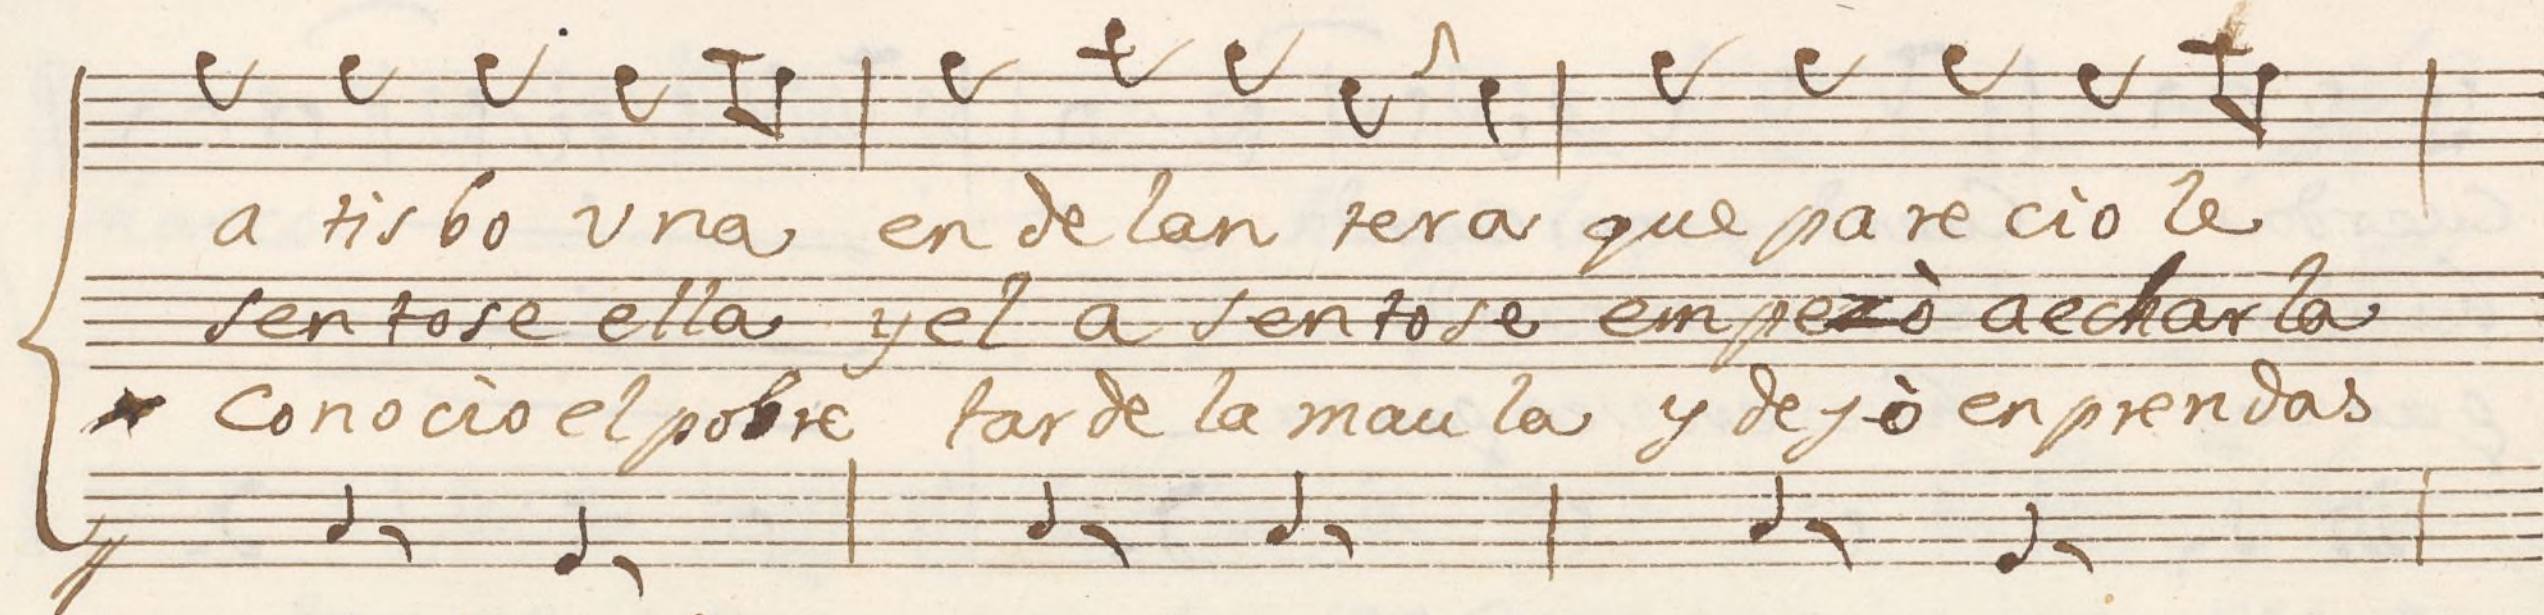 a tisbo una en delan tera que parecìo le
sentose ella y el a sentose empezò a echarla
Conocìo el pobre tarde la maula y deyò en prendas